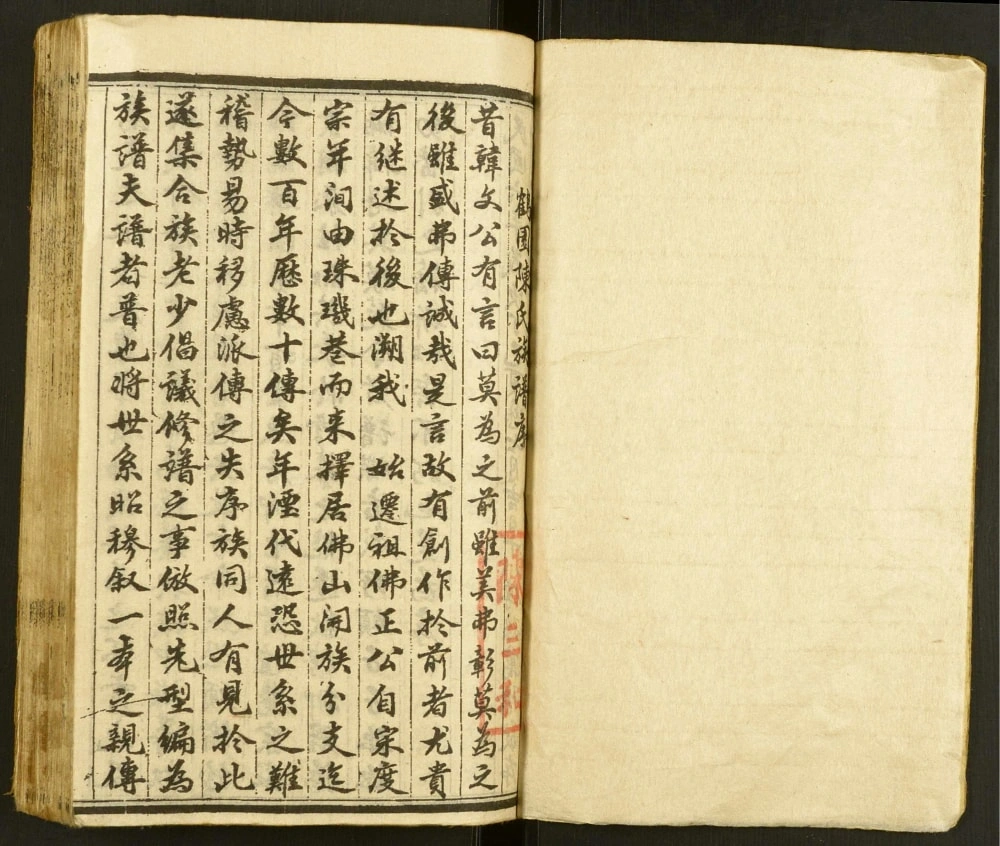 鶴園陳氏族譜序
昔韓文公有言曰莫為之前雖美弗彰莫為之
後雖盛弗傳誠哉是言故有創作於前者尤貴
有继述於後也溯我 始遷祖佛正公自宋度
宗年间由珠璣巷而来擇居佛山開族分支迄
今數百年歷數十傳矣年湮代遠恐世系之難
稽勢易時移慮派傳之失序族同人有見於此
遂集合族老少倡議修譜之事倣照先型編為
族譜夫譜者普也將世系昭穆叙一本之親傳